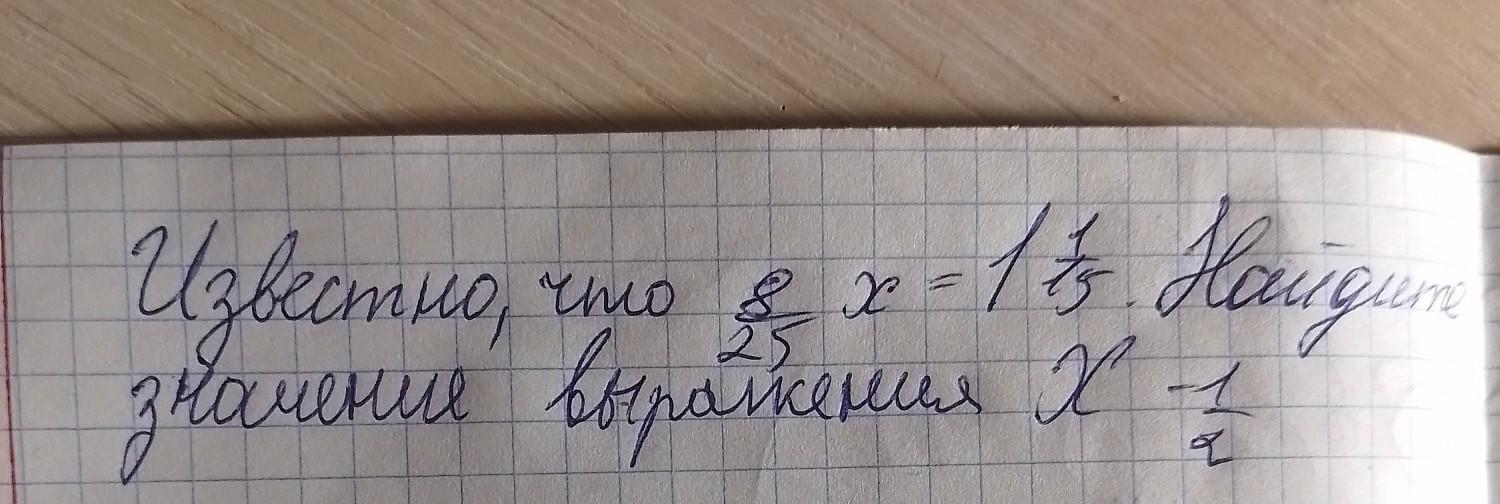 Известно, что 8/25 x = 1 1/15. Найдите
значение выражения x - 1/2